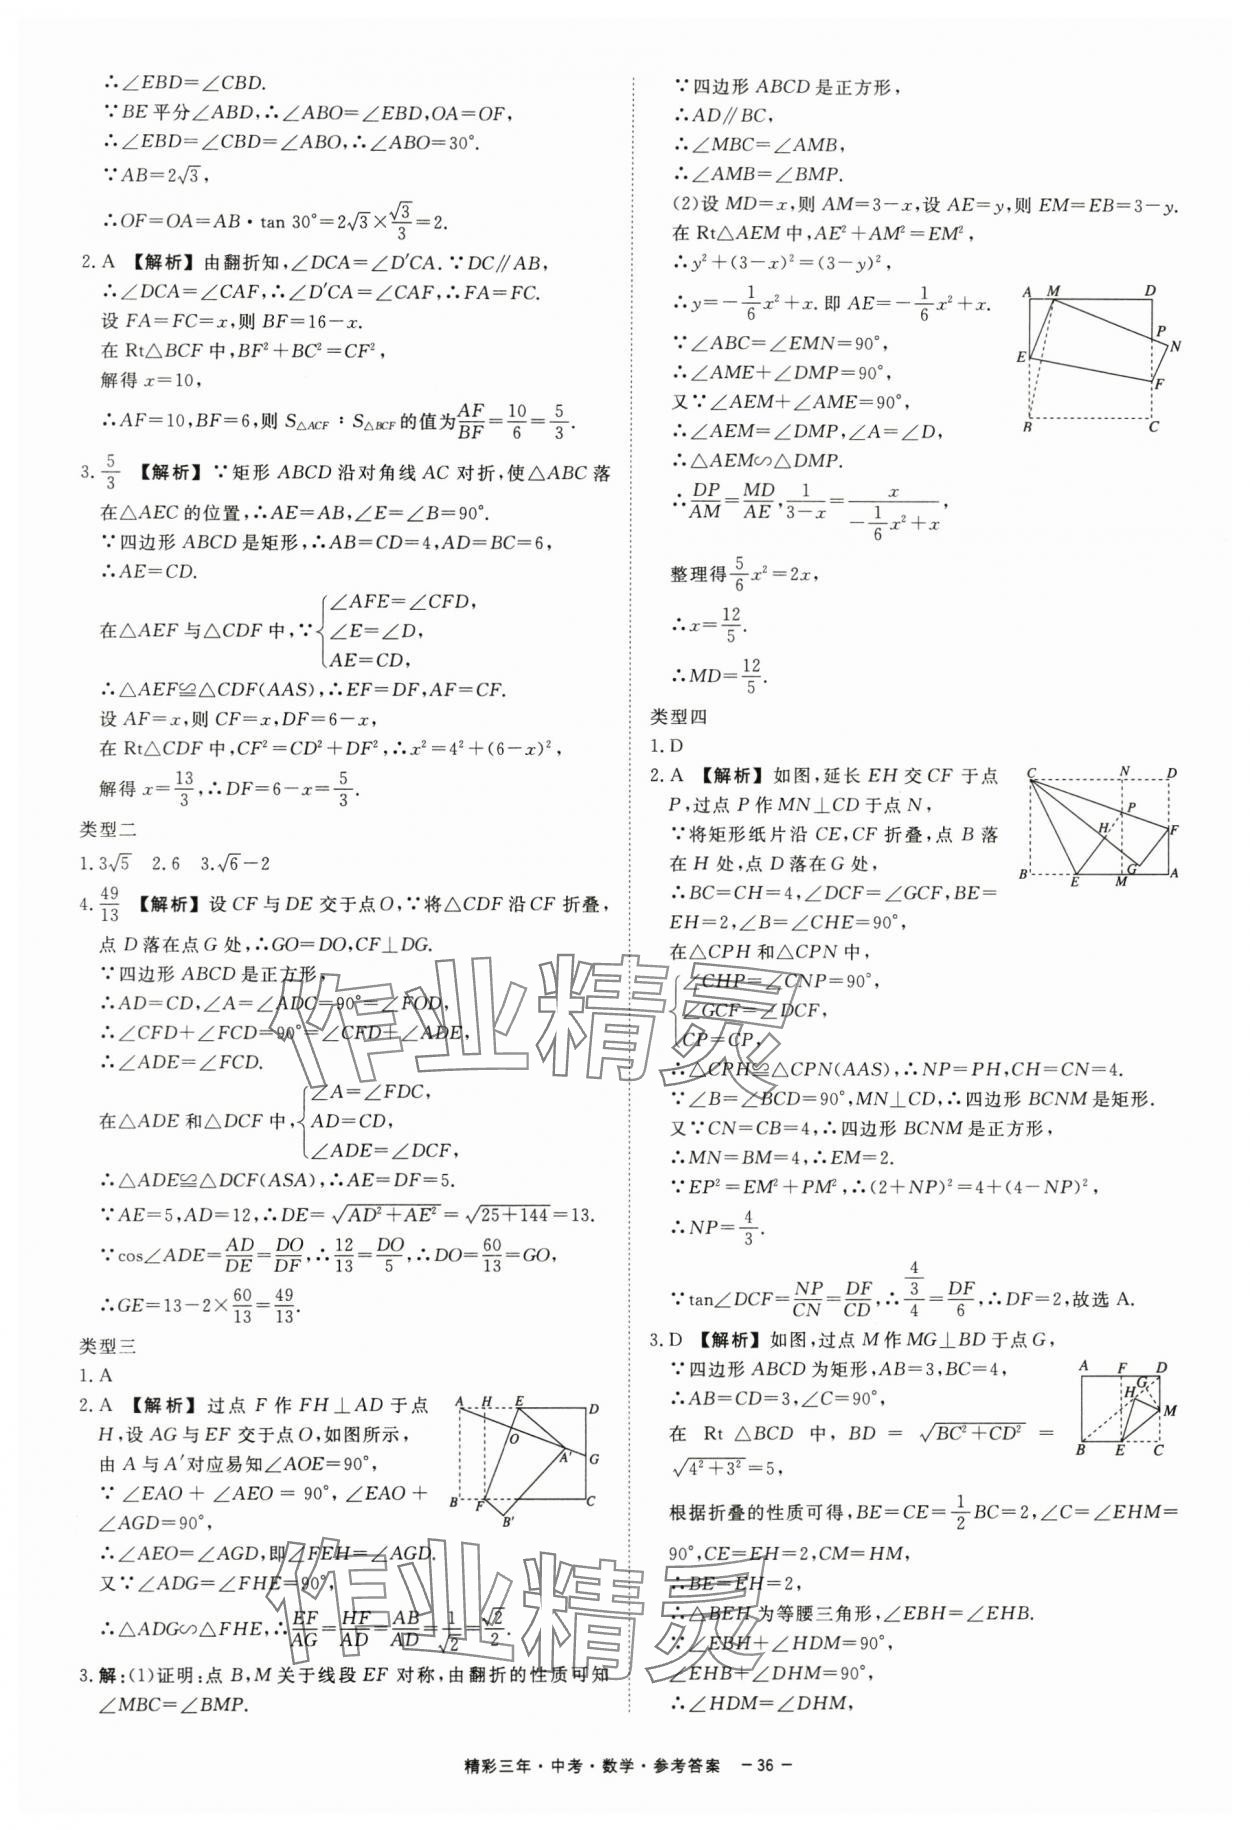 ∴∠EBD=∠CBD.
∵BE平分∠ABD,∴∠ABO=∠EBD,OA=OF,
∴∠EBD=∠CBD=∠ABO,∴∠ABO=30°.
∵AB=2√3,
∴OF=OA=AB·tan 30°=2√3×√3/3=2.
2.A 【解析】由翻折知,∠DCA=∠D′CA.∵DC∥AB,
∴∠DCA=∠CAF,∴∠D′CA=∠CAF,∴FA=FC.
设FA=FC=x,则BF=16-x.
在Rt△BCF中,BF²+BC²=CF²,
解得x=10,
∴AF=10,BF=6,则S△ACF∶S△BCF的值为AF/BF=10/6=5/3.
3.5/3 【解析】∵矩形ABCD沿对角线AC对折,使△ABC落
在△AEC的位置,∴AE=AB,∠E=∠B=90°.
∵四边形ABCD是矩形,∴AB=CD=4,AD=BC=6,
∴AE=CD.
在△AEF与△CDF中,∵{∠AFE=∠CFD,
∠E=∠D,
AE=CD,
∴△AEF≌△CDF(AAS),∴EF=DF,AF=CF.
设AF=x,则CF=x,DF=6-x,
在Rt△CDF中,CF²=CD²+DF²,∴x²=4²+(6-x)²,
解得x=13/3,∴DF=6-x=5/3.
类型二
1.3√5 2.6 3.√6-2
4.49/13 【解析】设CF与DE交于点O,∵将△CDF沿CF折叠,
点D落在点G处,∴GO=DO,CF⊥DG.
∵四边形ABCD是正方形,
∴AD=CD,∠A=∠ADC=90°=∠FOD,
∴∠CFD+∠FCD=90°=∠CFD+∠ADE,
∴∠ADE=∠FCD.
在△ADE和△DCF中,{∠A=∠FDC,
AD=CD,
∠ADE=∠DCF,
∴△ADE≌△DCF(ASA),∴AE=DF=5.
∵AE=5,AD=12,∴DE=√(AD²+AE²)=√(25+144)=13.
∵cos∠ADE=AD/DE=DO/DF,∴12/13=DO/5,∴DO=60/13=GO,
∴GE=13-2×60/13=49/13.
类型三
1.A
2.A 【解析】过点F作FH⊥AD于点
H,设AG与EF交于点O,如图所示,
由A与A′对应易知∠AOE=90°,
∵∠EAO+∠AEO=90°,∠EAO+
∠AGD=90°,
∴∠AEO=∠AGD,即∠FEH=∠AGD.
又∵∠ADG=∠FHE=90°,
∴△ADG∽△FHE,∴EF/AG=HF/AD=AB/AD=1/√2=√2/2.
A H E D
O
A′ G
B F C
B′
3.解:(1)证明:点B,M关于线段EF对称,由翻折的性质可知
∠MBC=∠BMP.
∵四边形ABCD是正方形,
∴AD∥BC,
∴∠MBC=∠AMB,
∴∠AMB=∠BMP.
(2)设MD=x,则AM=3-x,设AE=y,则EM=EB=3-y.
在Rt△AEM中,AE²+AM²=EM²,
∴y²+(3-x)²=(3-y)²,
∴y=-1/6x²+x.即AE=-1/6x²+x.
∵∠ABC=∠EMN=90°,
∴∠AME+∠DMP=90°,
又∵∠AEM+∠AME=90°,
∴∠AEM=∠DMP,∠A=∠D,
∴△AEM∽△DMP.
A M D
P N
E
F
B C
∴DP/AM=MD/AE,1/(3-x)=x/(-1/6x²+x),
整理得5/6x²=2x,
∴x=12/5.
∴MD=12/5.
类型四
1.D
2.A 【解析】如图,延长EH交CF于点
P,过点P作MN⊥CD于点N,
∵将矩形纸片沿CE,CF折叠,点B落
在H处,点D落在G处,
∴BC=CH=4,∠DCF=∠GCF,BE=
EH=2,∠B=∠CHE=90°,
C N D
P
H F
G
B E M A
在△CPH和△CPN中,
{∠CHP=∠CNP=90°,
∠GCF=∠DCF,
CP=CP,
∴△CPH≌△CPN(AAS),∴NP=PH,CH=CN=4.
∵∠B=∠BCD=90°,MN⊥CD,∴四边形BCNM是矩形.
又∵CN=CB=4,∴四边形BCNM是正方形,
∴MN=BM=4,∴EM=2.
∵EP²=EM²+PM²,∴(2+NP)²=4+(4-NP)²,
∴NP=4/3.
∵tan∠DCF=NP/CN=DF/CD,∴(4/3)/4=DF/6,∴DF=2,故选A.
3.D 【解析】如图,过点M作MG⊥BD于点G,
∵四边形ABCD为矩形,AB=3,BC=4,
∴AB=CD=3,∠C=90°,
在Rt△BCD中,BD=√(BC²+CD²)=
√(4²+3²)=5,
A F D
G
H
M
B E C
根据折叠的性质可得,BE=CE=1/2BC=2,∠C=∠EHM=
90°,CE=EH=2,CM=HM,
∴BE=EH=2,
∴△BEH为等腰三角形,∠EBH=∠EHB.
∵∠EBH+∠HDM=90°,
∠EHB+∠DHM=90°,
∴∠HDM=∠DHM,
作业精灵
作业精灵
精彩三年·中考·数学·参考答案 -36-